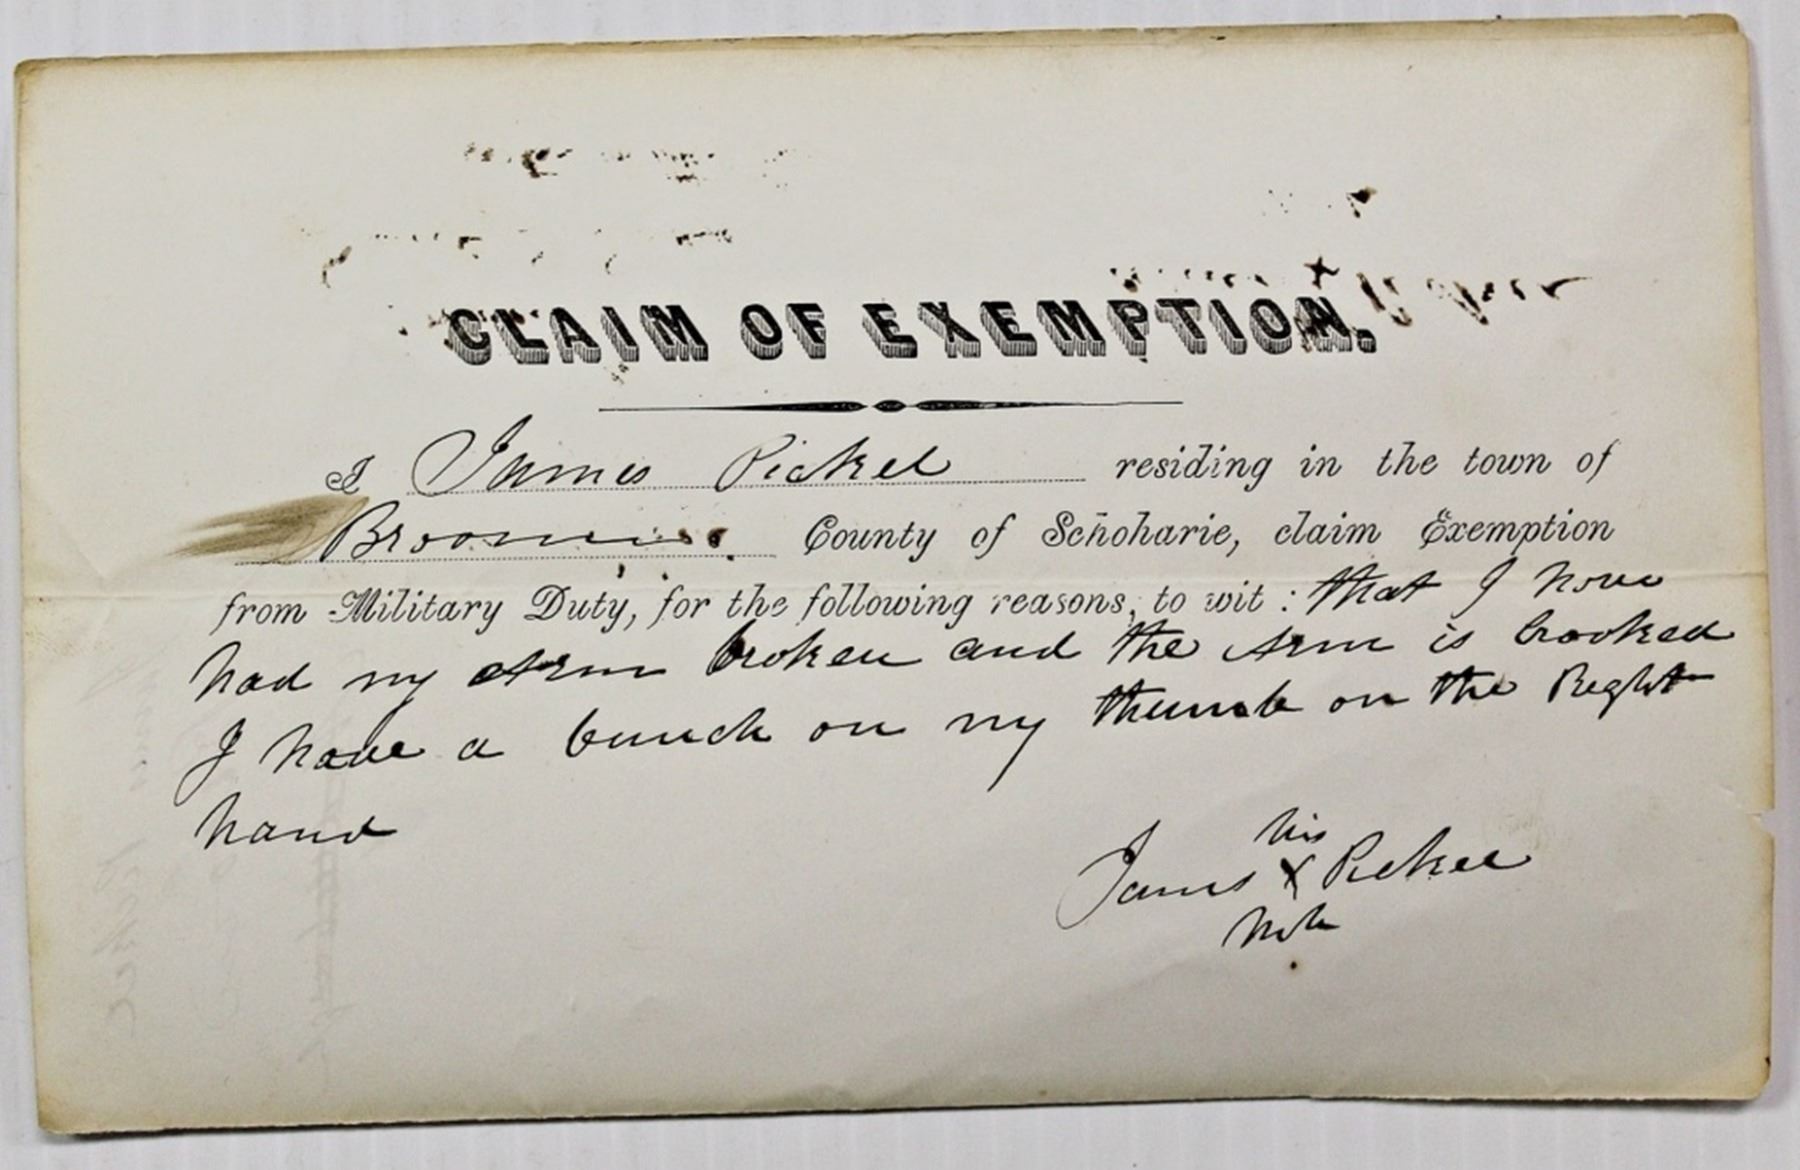 CLAIM OF EXEMPTION.
I James Pickel residing in the town of
Broome County of Schoharie, claim Exemption
from Military Duty, for the following reasons, to wit: that I have
had my Arm broken and the Arm is crooked
I have a bunch on my thumb on the Right
hand
his
James X Pickel